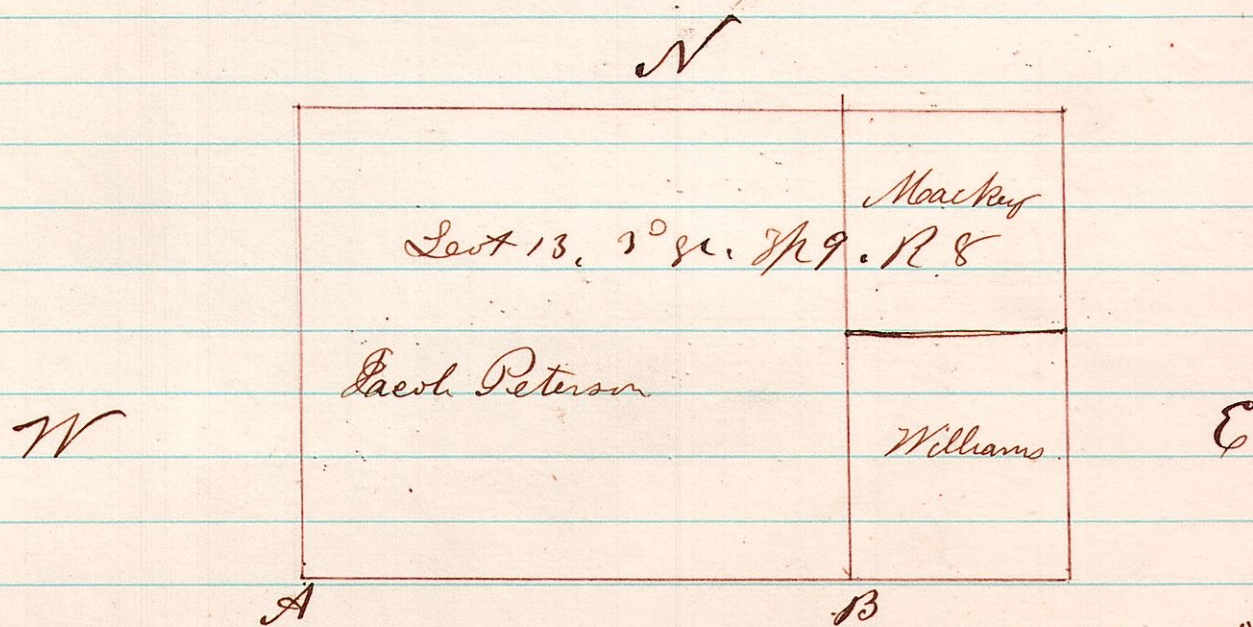 N
Mackey
Lot 13. 3° qr. Tp 9. R 8
Jacob Peterson
W
E
Williams
A
B